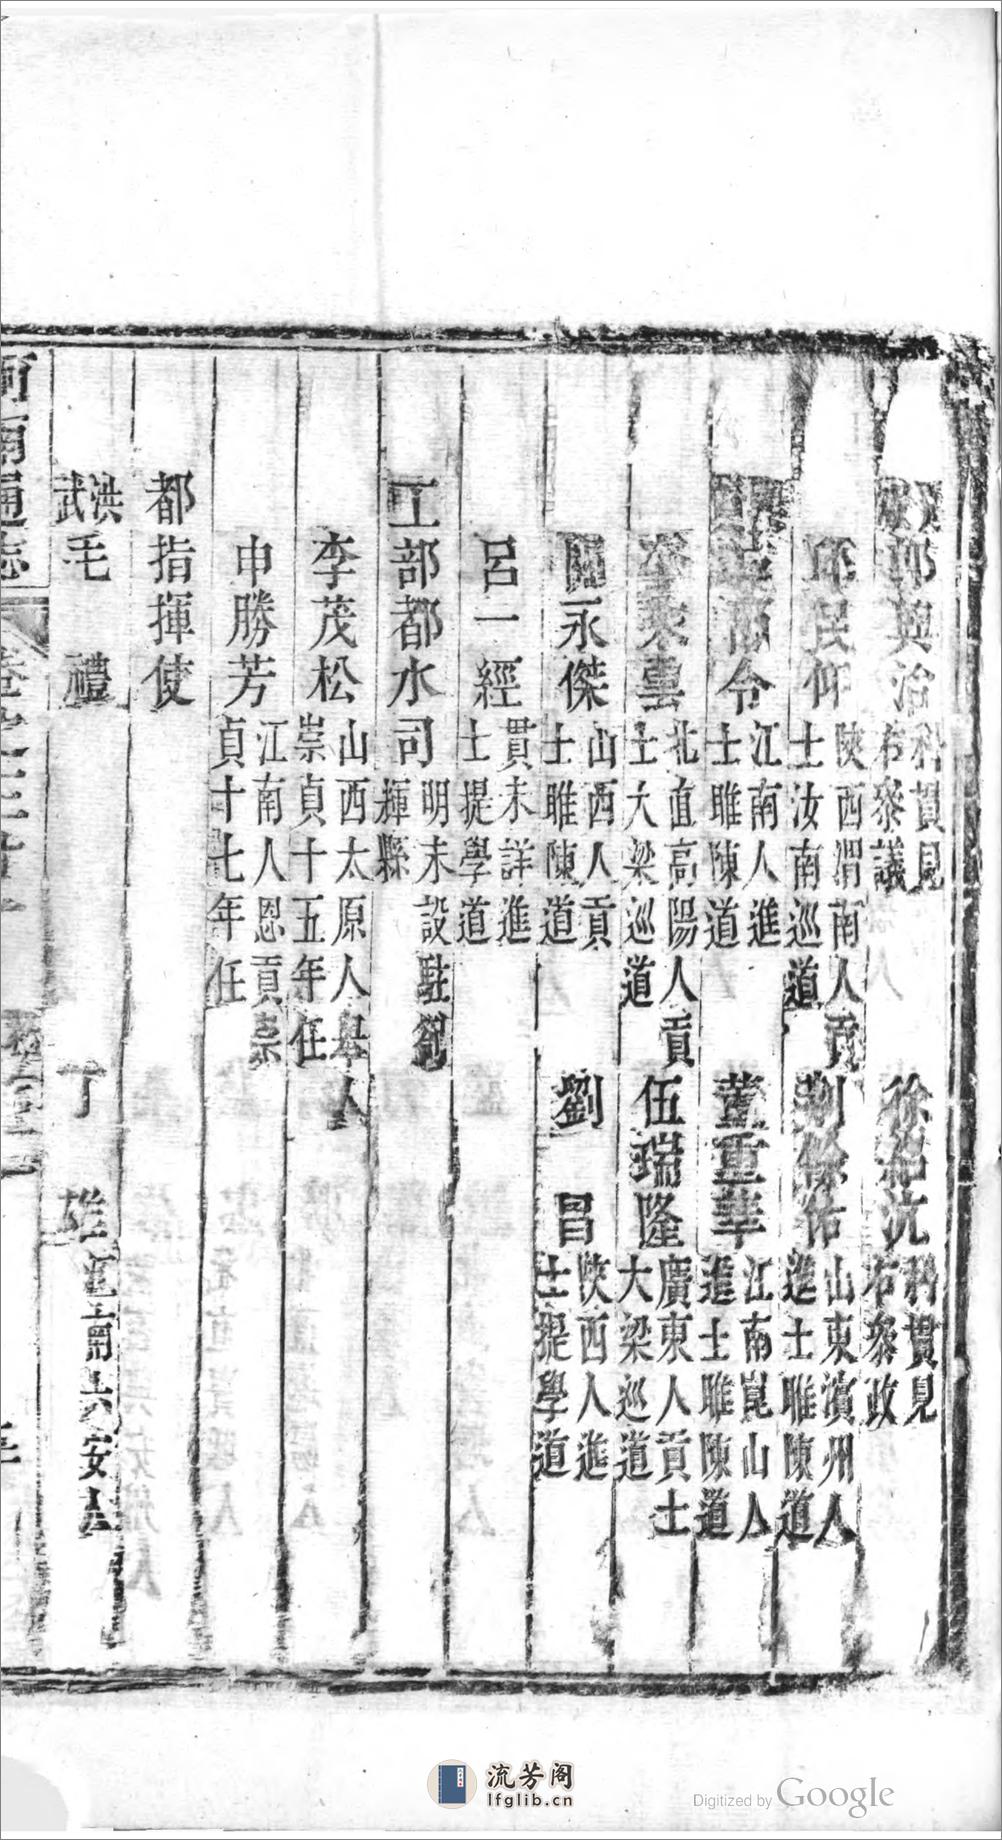 郭興治科貫見右叅議
徐 沆科貫見右叅政
邱民仰陝西渭南人貢士汝南巡道
荆 山東濱州人進士睢陳道
令江南人進士睢陳道
董重華江南崑山人進士睢陳道
雲北直高陽人貢士大梁巡道
伍瑞隆廣東人貢士大梁巡道
閻永傑山西人貢士睢陳道
劉 昌陝西人進士提學道
呂一經貫未詳進士提學道
工部都水司明末設駐劄輝縣
李茂松山西太原人舉人崇貞十五年任
申勝芳江南人恩貢崇貞十七年任
都指揮使
洪武
毛 禮
丁 安人
河南通志
流芳阁
lfglib.cn
Digitized by Google